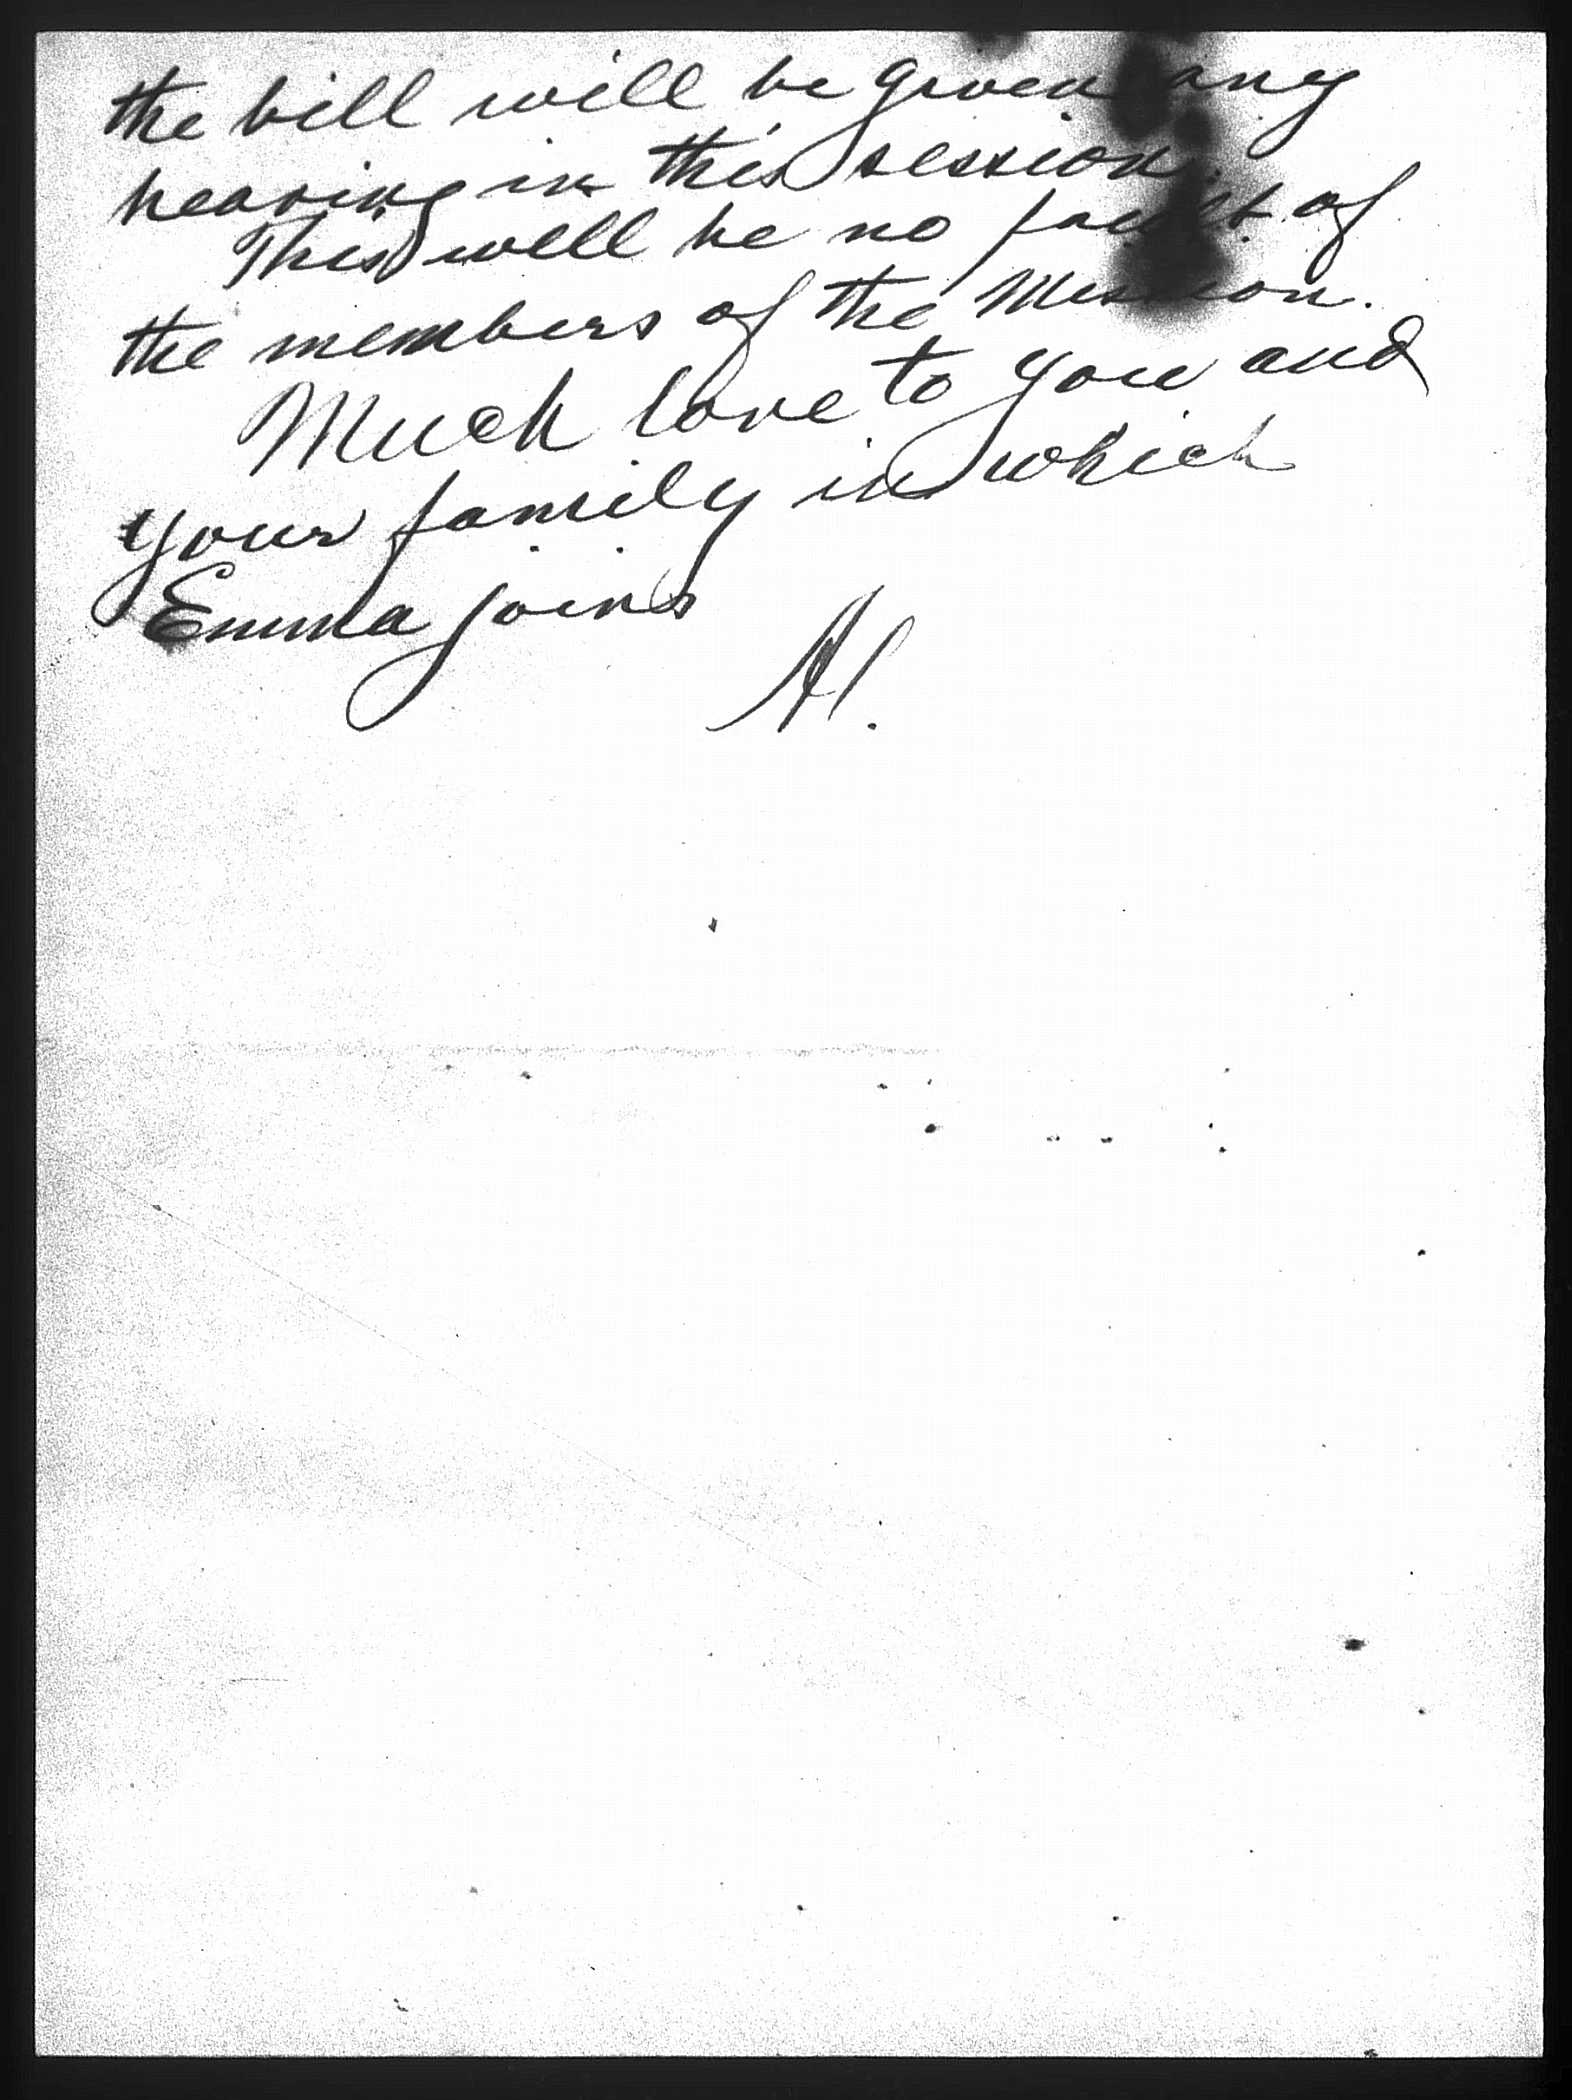 the bill will be given any
hearing in this session.
This will be no fault of
the members of the Mission.
Much love to you and
your family in which
Emma joins
Al.